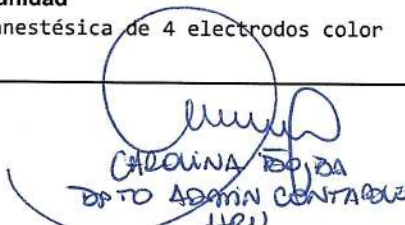 unidad
anestésica de 4 electrodos color
CAROLINA
DPTO ADMIN CONTABLE